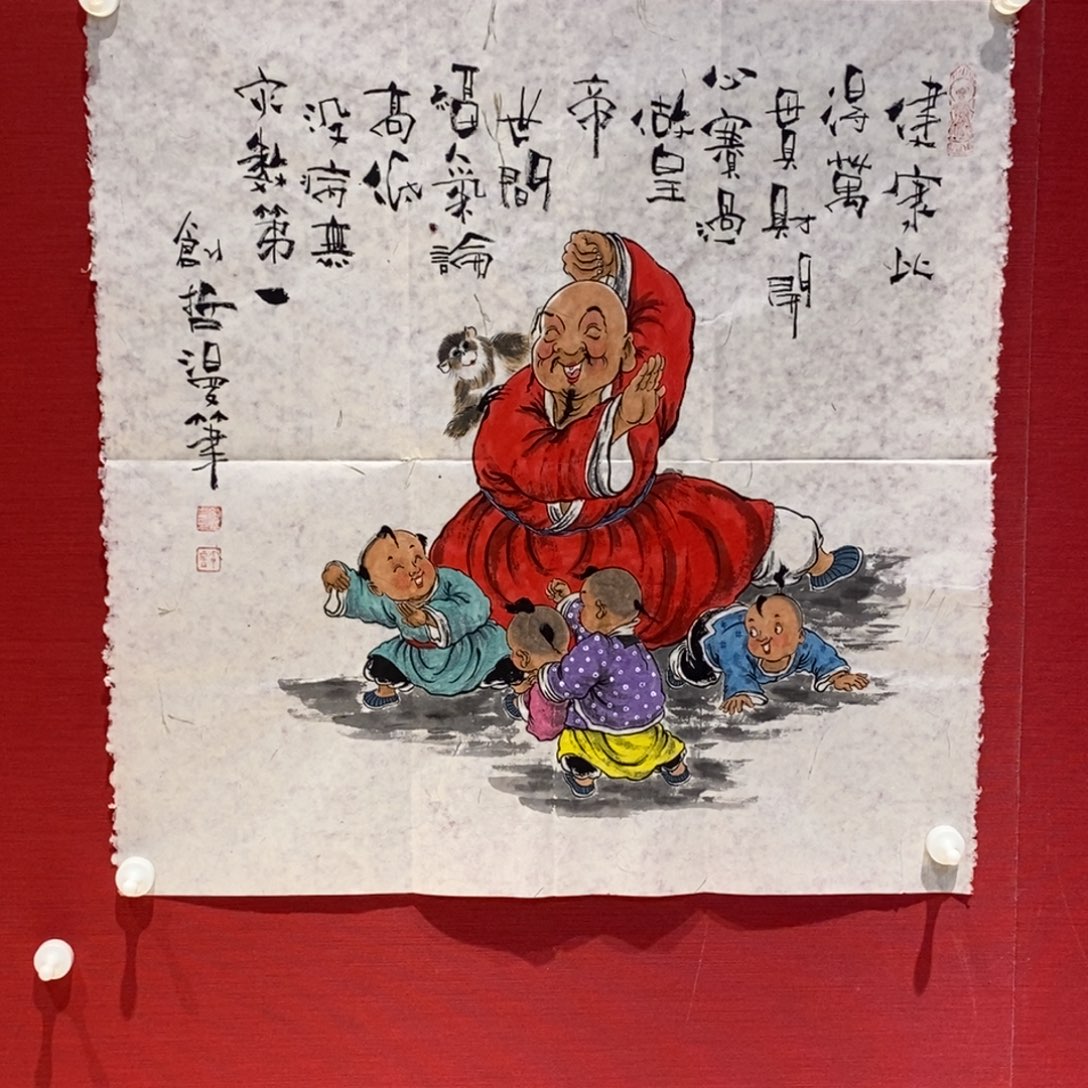 健康比
得萬
貫財開
心賽過
做皇
帝
世間
福氣論
高低
没病無
灾數第一
創哲漫筆